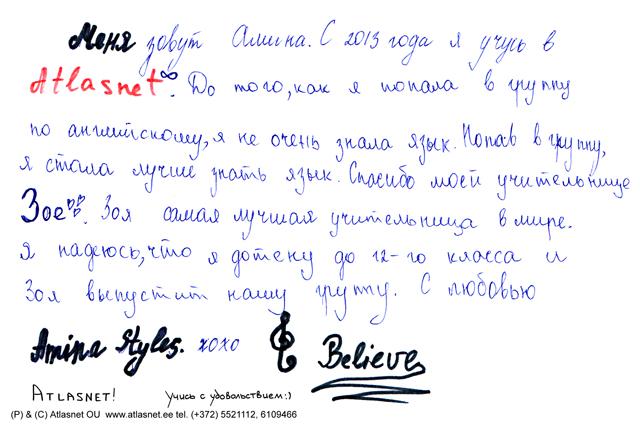 Меня зовут Амина. С 2013 года я учусь в
Atlasnet∞. До того, как я попала в группу
по английскому, я не очень знала язык. Попав в группу,
я стала лучше знать язык. Спасибо моей учительнице
Зое♡♡♡. Зоя самая лучшая учительница в мире.
Я надеюсь, что я дотену до 12-го класса и
Зоя выпустит нашу группу. С любовью
Amina Styles. xoxo Believe
ATLASNET! Учись с удовольствием:)
(P) & (C) Atlasnet OU www.atlasnet.ee tel. (+372) 5521112, 6109466